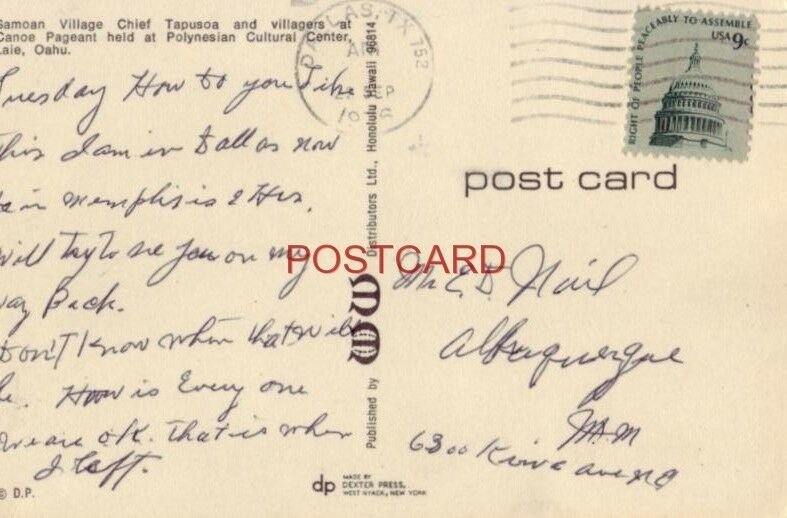 Samoan Village Chief Tapusoa and villagers at
Canoe Pageant held at Polynesian Cultural Center,
Laie, Oahu.
Tuesday How do you like
This I am in Dallas now
in memphis is 2 Hrs.
will try to see you on my
way Back.
Don't Know when that will
be. How is Every one
we are O.K. that is when
I left.
© D.P.
Published by
Distributors Ltd., Honolulu Hawaii 96814
MADE BY
dp DEXTER PRESS,
WEST NYACK, NEW YORK
DALLAS, TX 752
SEP
RIGHT OF PEOPLE PEACEABLY TO ASSEMBLE
USA 9c
post card
POSTCARD
Mr. E. D.
Albuquerque
N.M
6300 Kiva ave NE